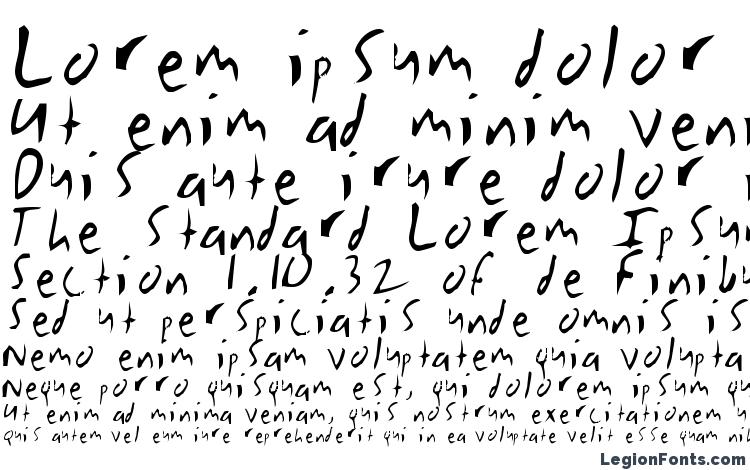 Lorem ipsum dolor
Ut enim ad minim veni
Duis aute irure dolor
The standard Lorem Ipsum
Section 1.10.32 of de Finibu
Sed ut perspiciatis unde omnis is
Nemo enim ipsam voluptatem quia volupta
Neque porro quisquam est, qui dolorem ipsum qu
Ut enim ad minima veniam, quis nostrum exercitationem u
Quis autem vel eum iure reprehenderit qui in ea voluptate velit esse quam nih
LegionFonts.com